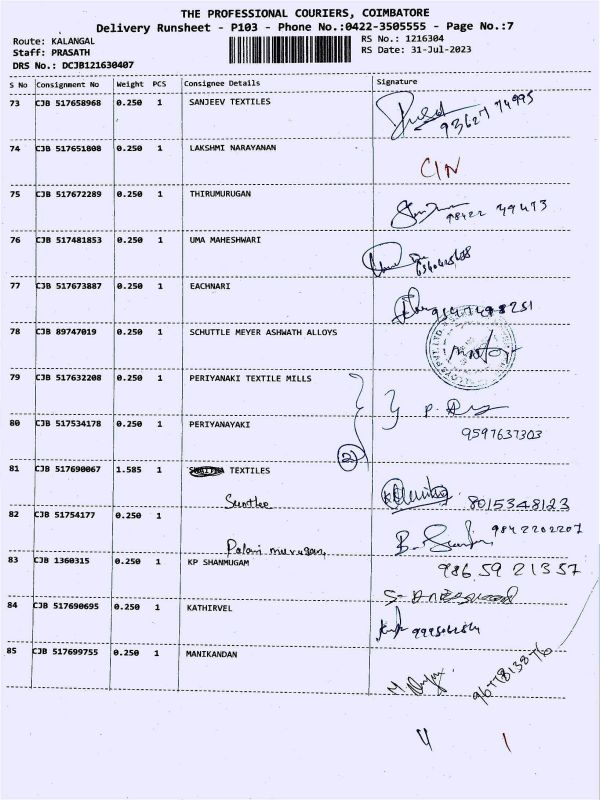 THE PROFESSIONAL COURIERS, COIMBATORE
Delivery Runsheet - P103 - Phone No.:0422-3505555 - Page No.:7
Route: KALANGAL RS No.: 1216304
Staff: PRASATH RS Date: 31-Jul-2023
DRS No.: DCJB121630407
S No Consignment No Weight PCS Consignee Details Signature
73 CJB 517658968 0.250 1 SANJEEV TEXTILES
93627 74995
74 CJB 517651808 0.250 1 LAKSHMI NARAYANAN
CIN
75 CJB 517672289 0.250 1 THIRUMURUGAN
98422 49473
76 CJB 517481853 0.250 1 UMA MAHESHWARI
77 CJB 517673887 0.250 1 EACHNARI
78 CJB 89747019 0.250 1 SCHUTTLE MEYER ASHWATH ALLOYS
79 CJB 517632208 0.250 1 PERIYANAKI TEXTILE MILLS
80 CJB 517534178 0.250 1 PERIYANAYAKI
9597637303
2
81 CJB 517690067 1.585 1 TEXTILES
8015348123
82 CJB 51754177 0.250 1
9842202207
Palani murugan
83 CJB 1360315 0.250 1 KP SHANMUGAM
986 59 21357
84 CJB 517690695 0.250 1 KATHIRVEL
85 CJB 517699755 0.250 1 MANIKANDAN